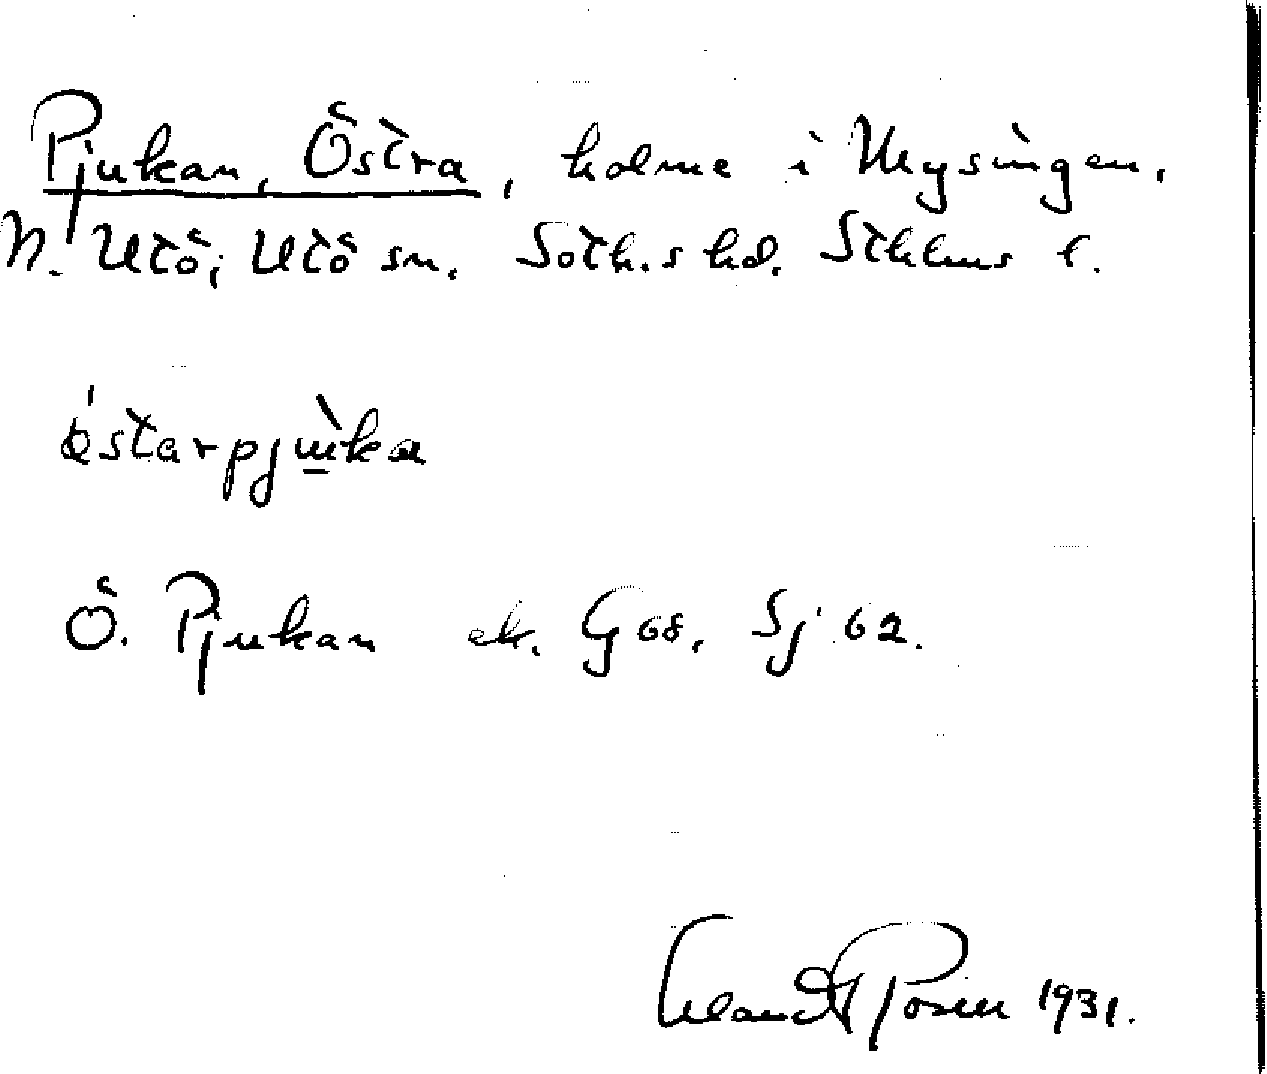 Pjukan, Östra, holme i Mysingen.
N. Utö, Utö sn. Soth.s hd. Sthlms l.
östarpjuka
Ö. Pjukan ek. G 68, Sj 62.
Rosén 1931.